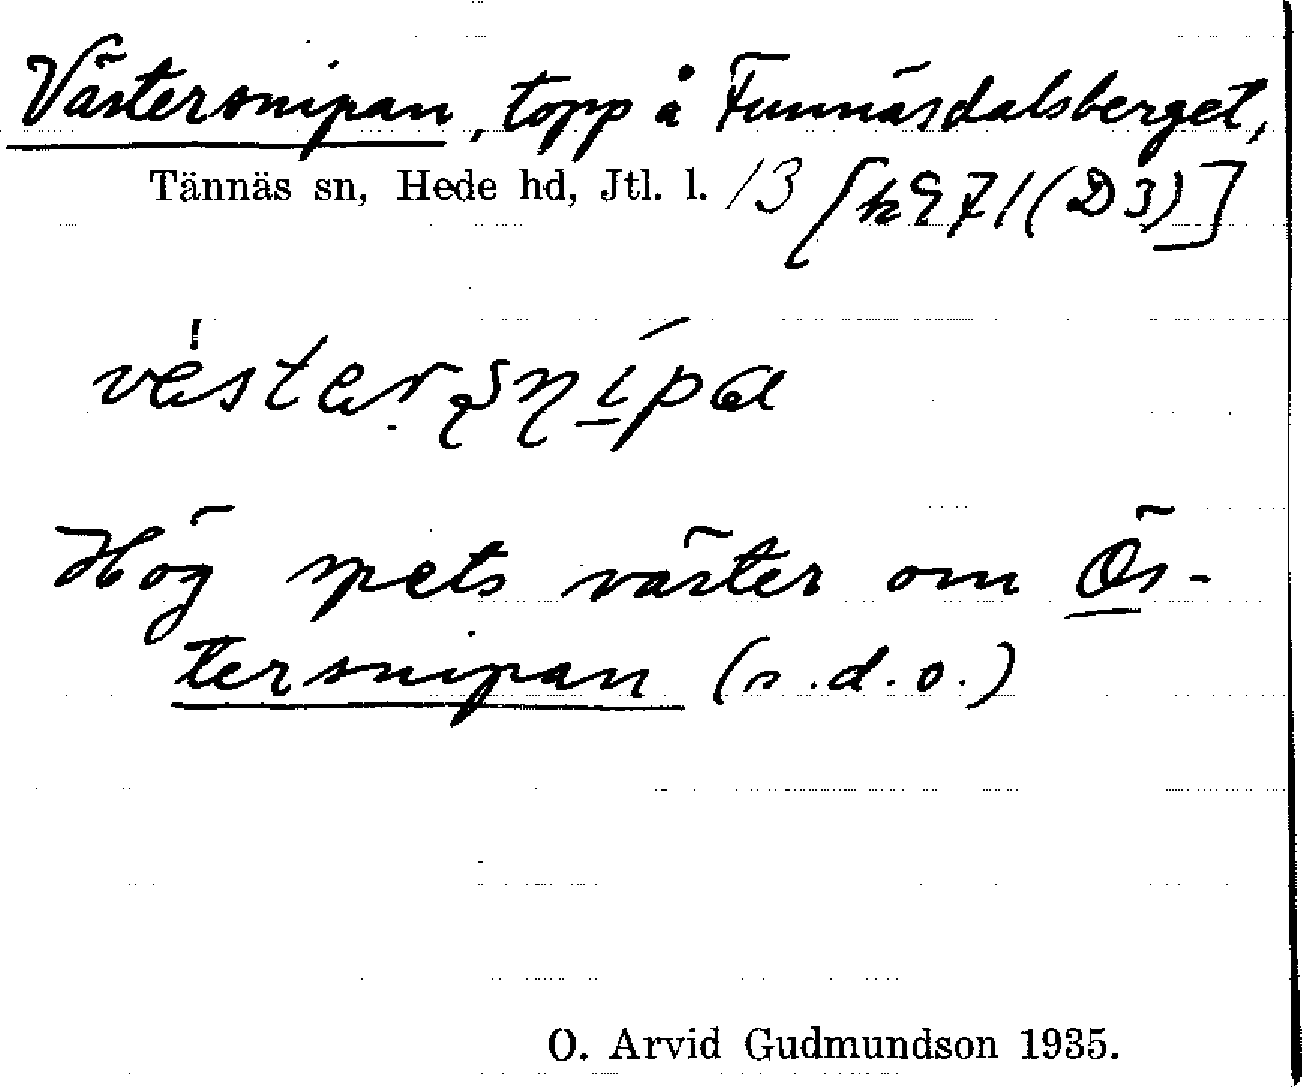 Västersnipan, topp å Funnäsdalsberget,
Tännäs sn, Hede hd, Jtl. l. 13 [hE71(D3)]
Hög spets väster om Ös-
tersnipan (s.d.o.)
O. Arvid Gudmundson 1935.